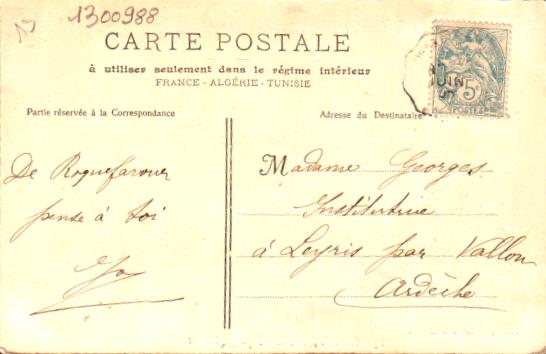 13
1300988
CARTE POSTALE
à utiliser seulement dans le régime intérieur
FRANCE - ALGÉRIE - TUNISIE
Partie réservée à la Correspondance
Adresse du Destinataire
De Roquefavour
pense à toi
Madame Georges
Institutrice
à Leyris par Vallon
Ardèche
JUIN
5c
POSTES